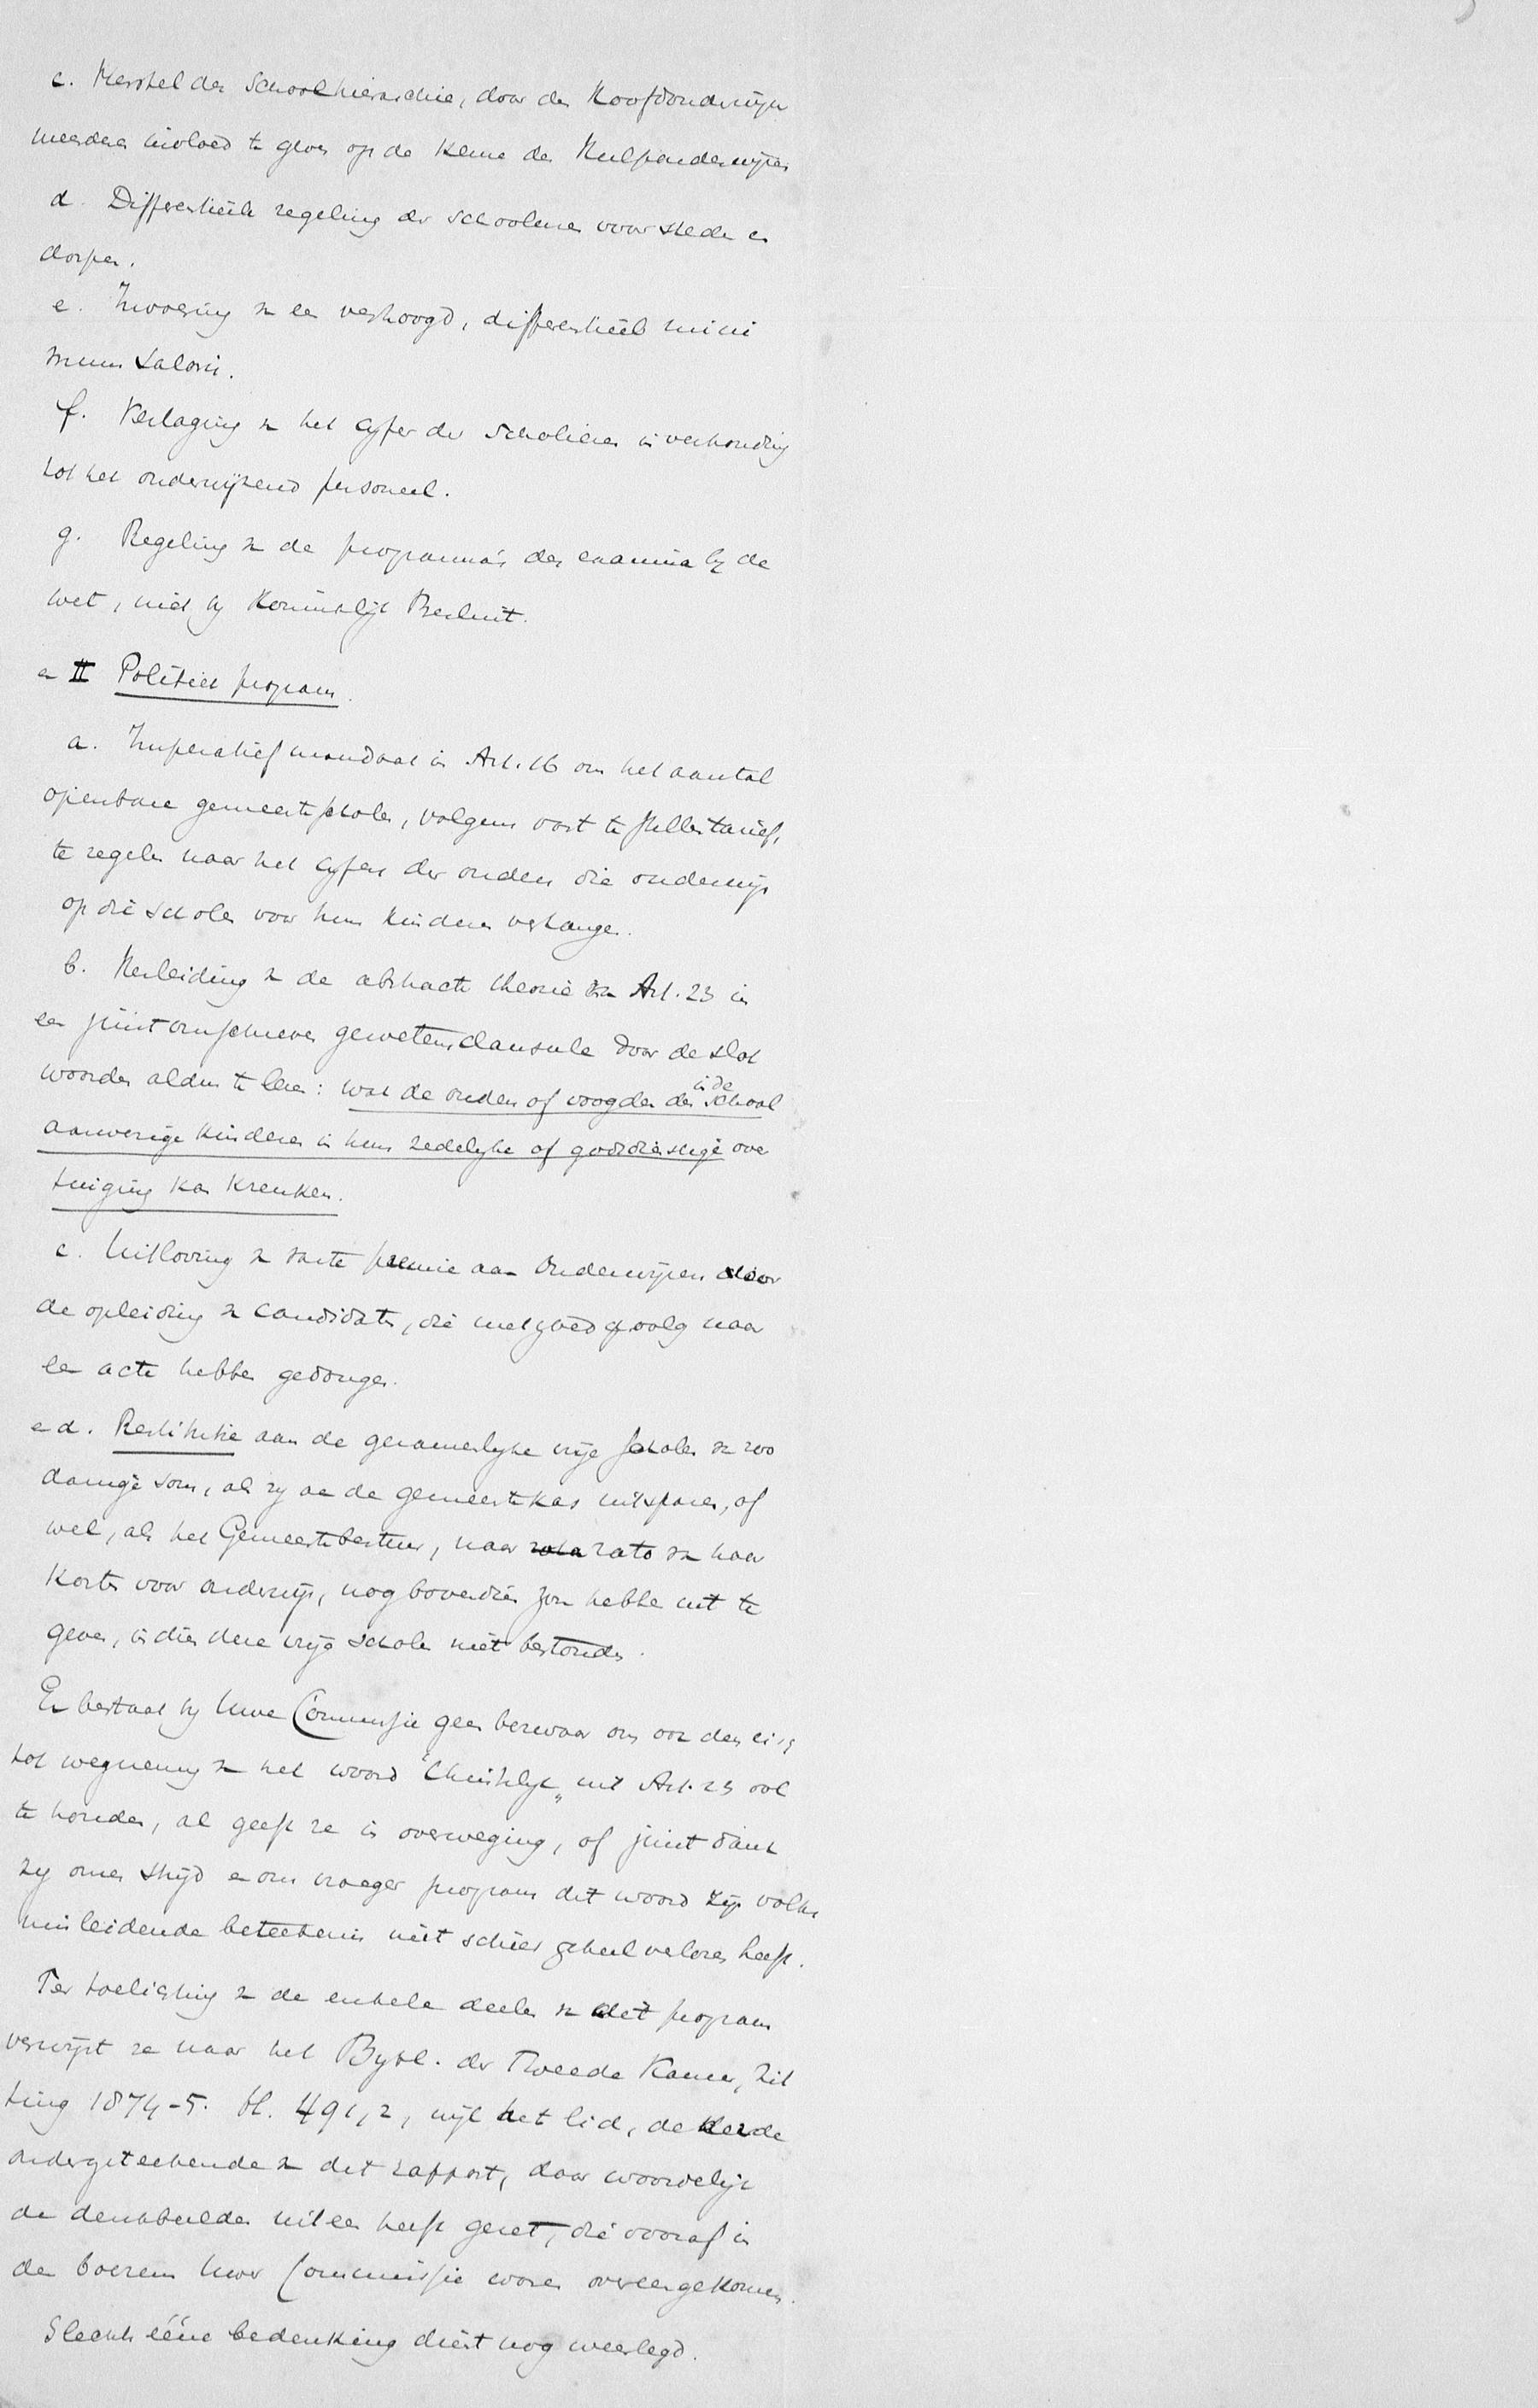 c. Herstel der Schoolhierarchie, door den Hoofdonderwijzer
meerderen invloed te geven op de keuze der Hulponderwijzers
d. Differentieele regeling der schooleischen voor steden en
dorpen.
e. Invoering van een verhoogd, differentieel mini
mum salaris.
f. Verlaging van het cyfer der scholieren in verhouding
tot het onderwijzend personeel.
g. Regeling van de programma's der examina by de
wet, niet by Koninklijk Besluit.
en II Politiek program.
a. Imperatief mandaat in Art. 16 om het aantal
openbare gemeentescholen, volgens vast te stellen tarief,
te regelen naar het cyfer der ouders die onderwijs
op die scholen voor hun kinderen verlangen.
b. Herleiding van de abstracte theorie van Art. 23 in
een juist omschreven gewetensclausule door de slot
woorden aldus te lezen: wat de ouders of voogden der in de school
aanwezige kinderen in hun zedelyke of godsdienstige over
tuiging kan krenken.
c. Uitloving van vaste premie aan Onderwijzers voor
de opleiding van candidaten, die met goed gevolg naar
een acte hebben gedongen.
en d. Restitutie aan de gezamenlyke vrije scholen van zoo
danige som, als zy aan de gemeentekas uitsparen, of
wel, als het Gemeentebestuur, naar rato van haar
kosten voor onderwijs, nog bovendien zou hebben uit te
geven, indien deze vrije scholen niet bestonden.
Er bestaat by Uwe Commissie geen bezwaar om ook den eisch
tot wegneming van het woord "Christelyk" uit Art. 23 vol
te houden, al geeft ze in overweging, of juist dank
zy onzen strijd en ons vroeger program dit woord zijn volks
misleidende beteekenis niet schier geheel verloren heeft.
Ter toelichting van de enkele deelen van dit program
verwijst ze naar het Bybl. der Tweede Kamer, Zit
ting 1874-5. bl. 491, 2, wijl het lid, de derde
ondergeteekende van dit rapport, daar woordelijk
de denkbeelden uiteen heeft gezet, die vooraf in
den boezem Uwer Commissie waren overeengekomen.
Slechts ééne bedenking dient nog weerlegd.